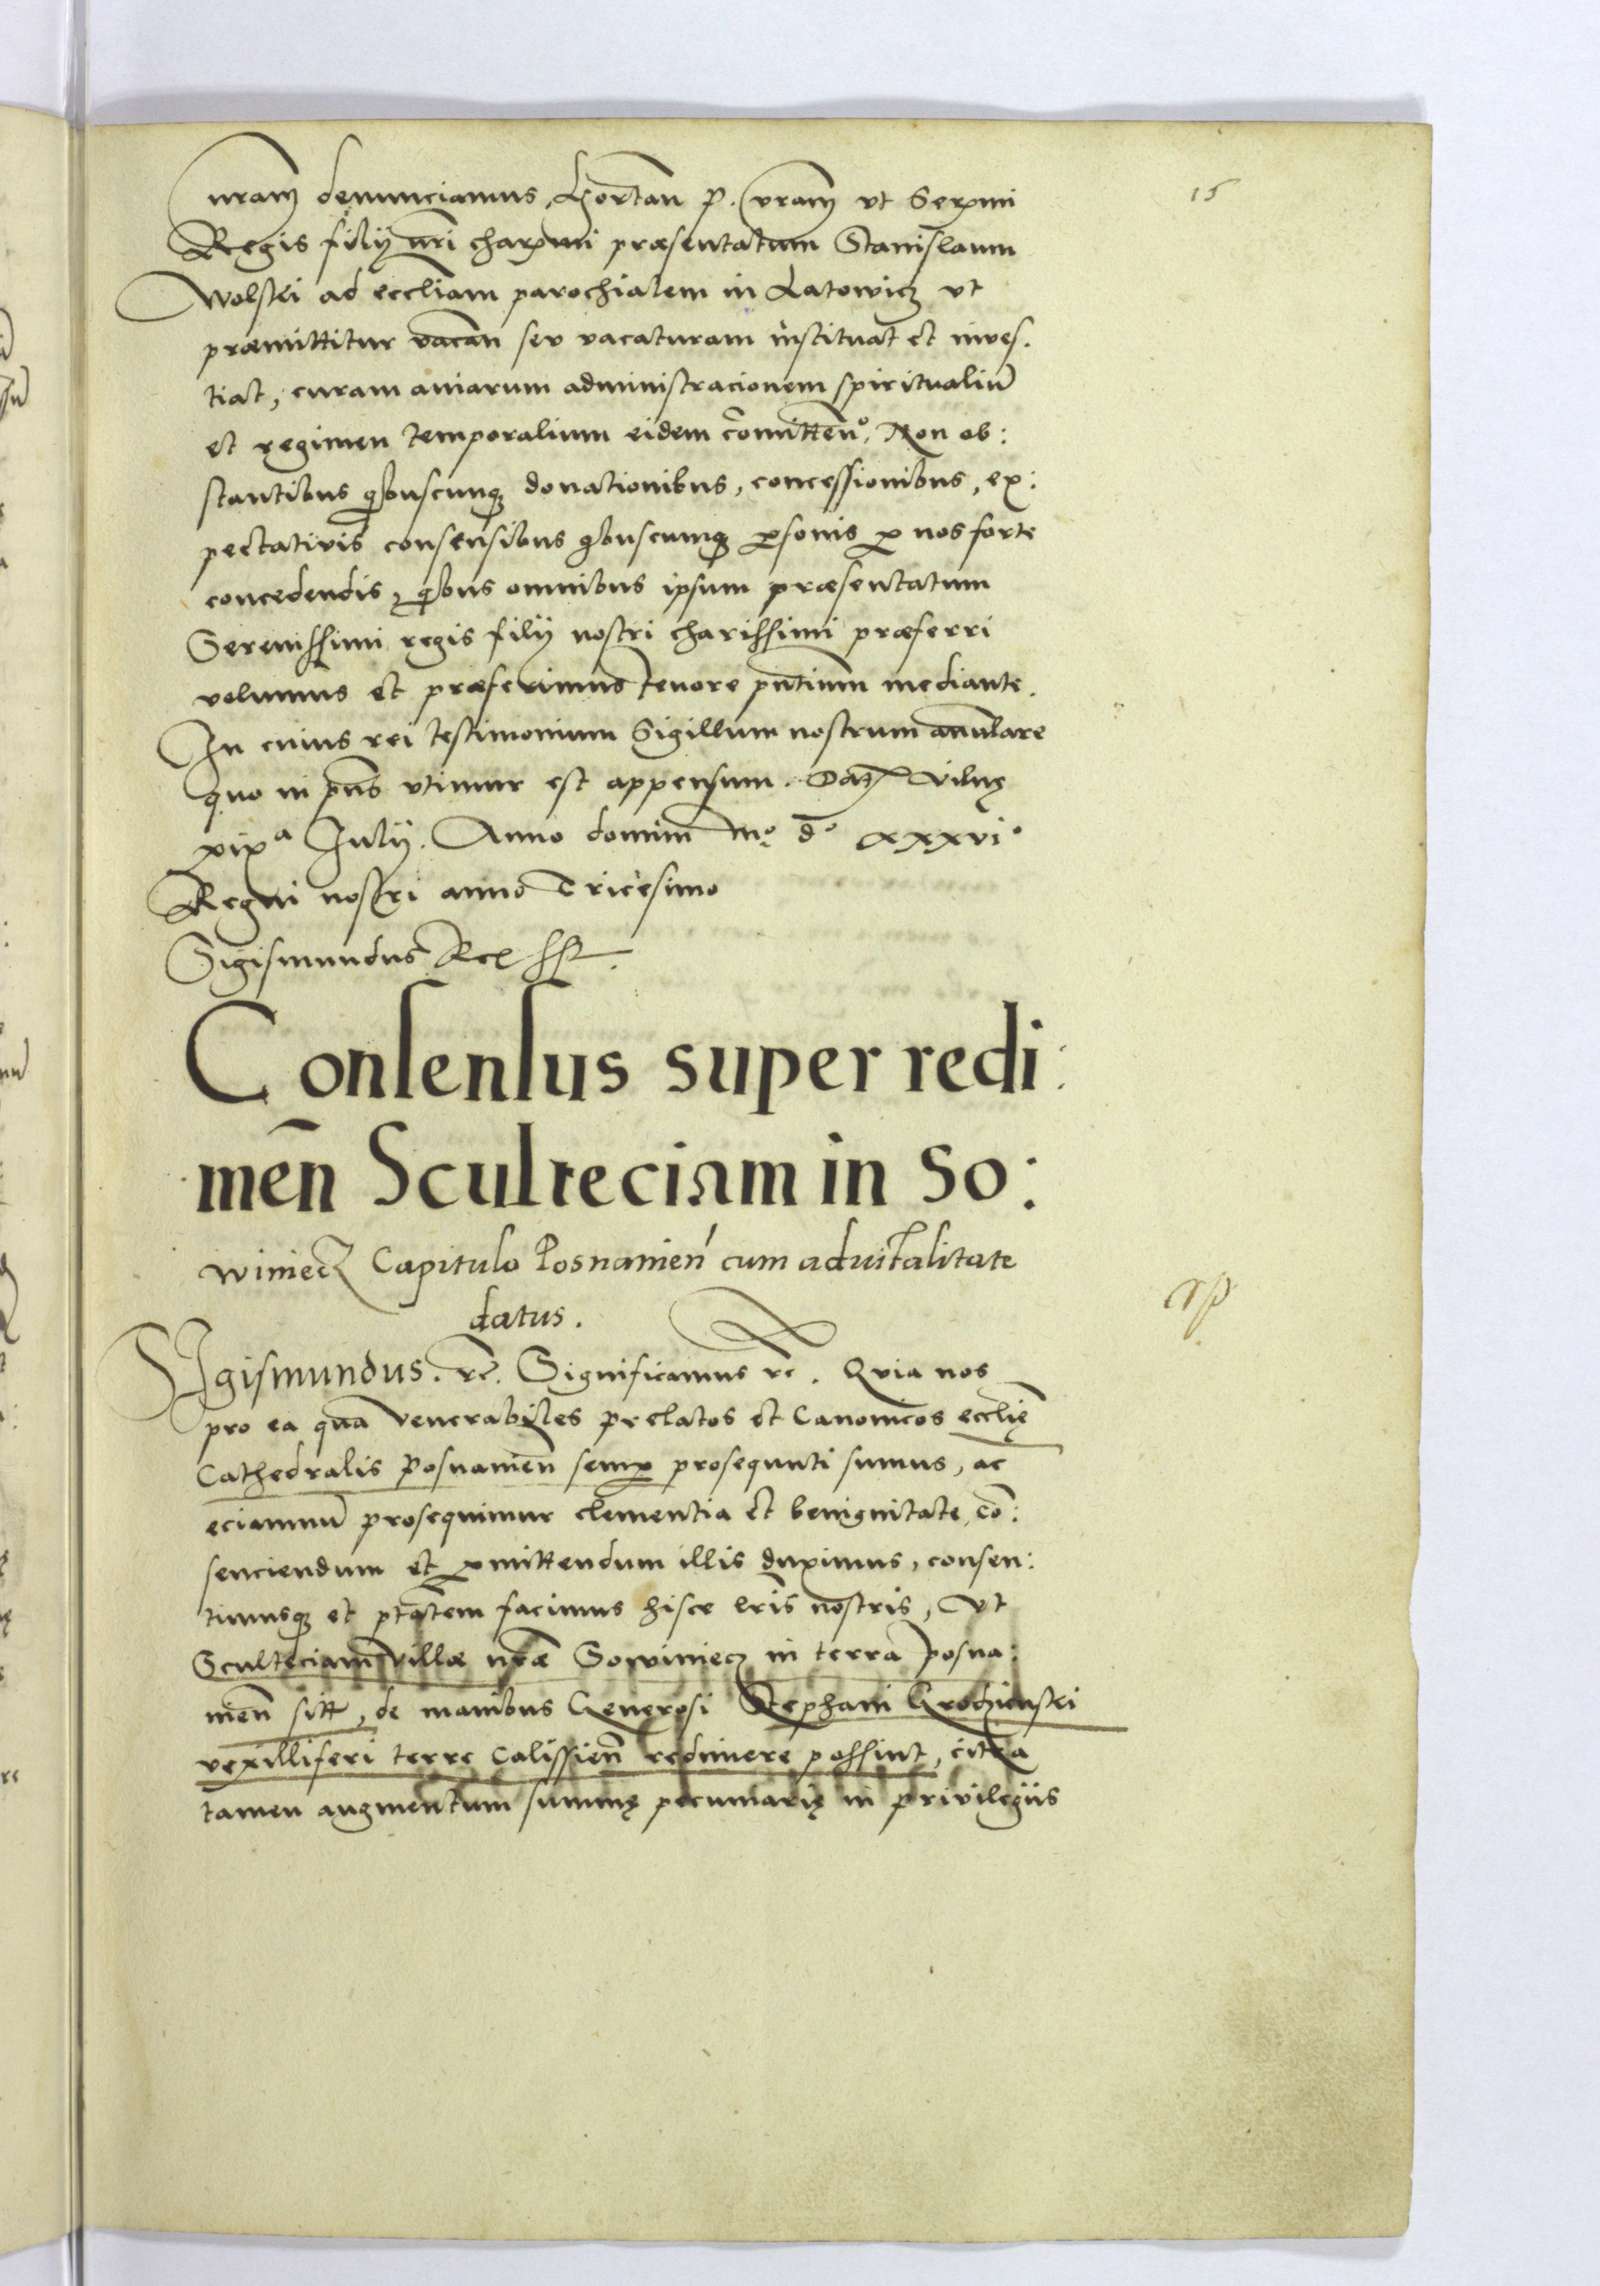 15
nram denunciamus, Hortan p. vram vt Serenmi
Regis filij nri charmi præsentatum Stanislaum
Wolski ad eccliam parochialem in Latowicz vt
præmittitur vacan seu vacaturam instituat et inves.
tiat, curam aniarum administracionem spiritualiū
et regimen temporalium eidem cōmitten°. Non ob:
stantibus qbuscunq donationibus, concessionibus, ex:
pectativis consensibus qbuscumq psonis p nos forte
concedendis, qbus omnibus ipsum præsentatum
Serenissimi regis filij nostri charissimi præferri
volumus et præferimus tenore pntium mediante.
In cuius rei testimonium Sigillum nostrum annulare
quo in pns vtimur est appensum. Dat Vilnę
xixa July. Anno domini m° d° xxxvi°
Regni nostri anno Tricesimo
Sigismundus Rex sst.
Consensus super redi:
men̄ Sculteciam in So:
winiecz Capitulo Posnanien cum advitalitate
datus.
SIgismundus. rc. Significamus rc. Quia nos
pro ea qua venerabiles prelatos et Canonicos ecclię
Cathedralis Posnanien semp prosequuti sumus, ac
eciamnū prosequimur clementia et benignitate, cō:
senciendum et pmittendum illis duximus, consen:
timusq et ptatem facimus hisce lris nostris, Vt
Sculteciam villæ nræ Sowiniecz in terra Posna:
nien sitt, de manibus Generosi Stephani Grodzienski
vexilliferi terre Calissien redimere possint, citra
tamen augmentum summę pecuniarię in privilegiis